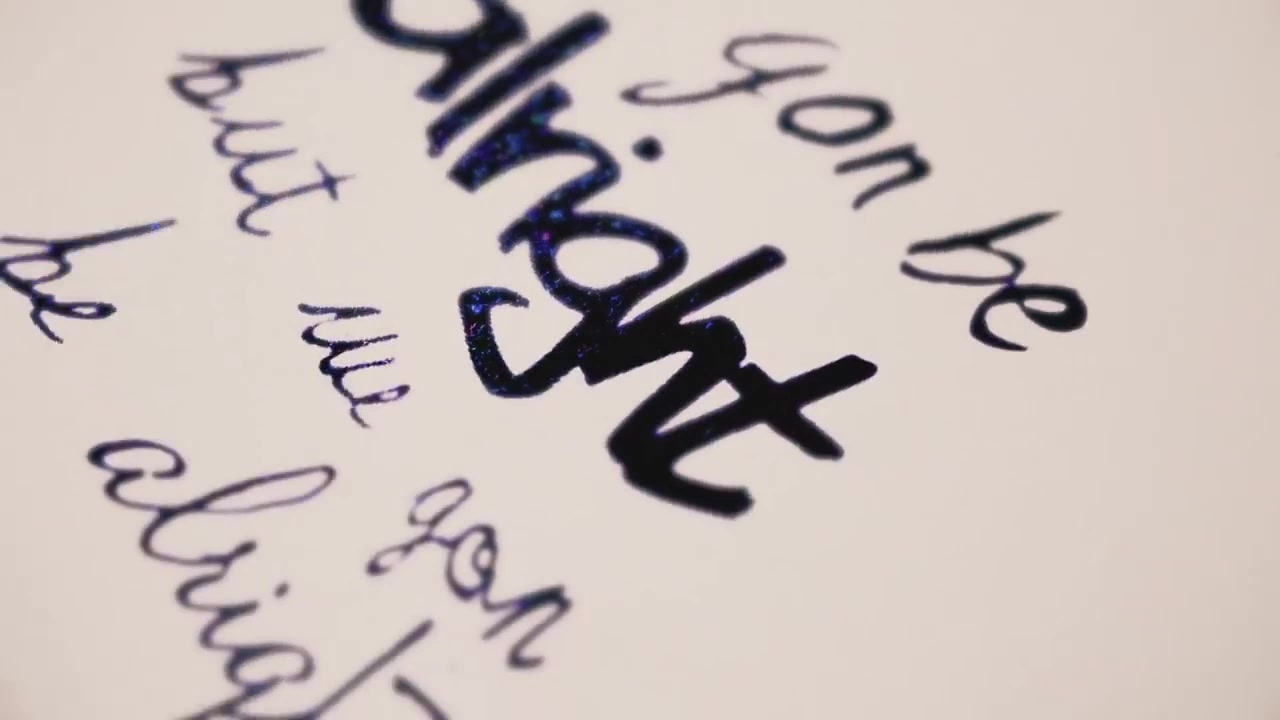 gon be
alright
but we gon
be alright